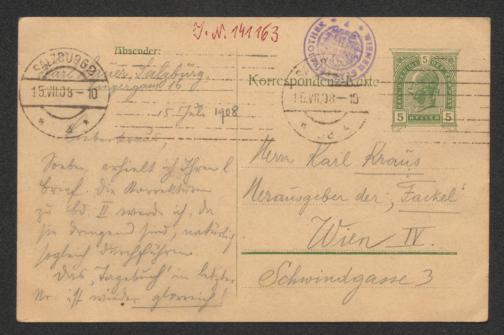 J. N. 141163
Absender:
Karl Salzburg,
16
SALZBURG 2
15.VII.08-10
Korrespondenz-Karte
15.VII.08-10
5
5 HELLER 5
15. Juli 1908
Lieber Kraus,
Soeben erhielt ich Ihren l.
Brief. Die Korrekturen
zu Bd. II werde ich, da
sie dringend sind, natürlich
sogleich durchführen.
Das „Tagebuch“ in letzter
Nr. ist wieder glorreich!
Herrn Karl Kraus
Herausgeber der „Fackel“
Wien IV.
Schwindgasse 3